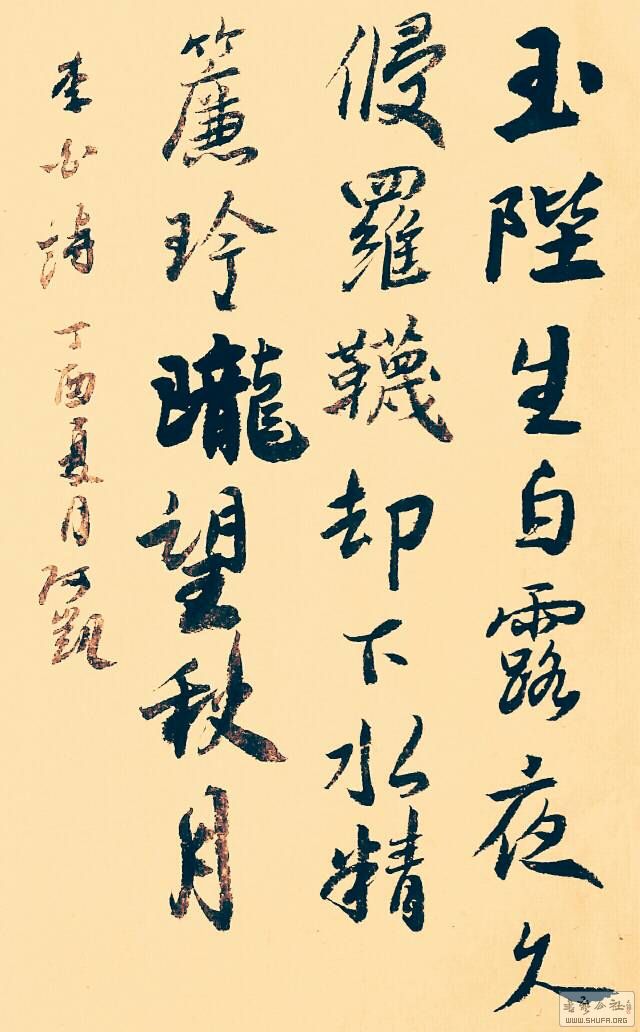 玉陛生白露夜久
侵羅韈却下水精
簾玲瓏望秋月
李白詩 丁酉夏月阿凱
WWW.SHUFA.ORG